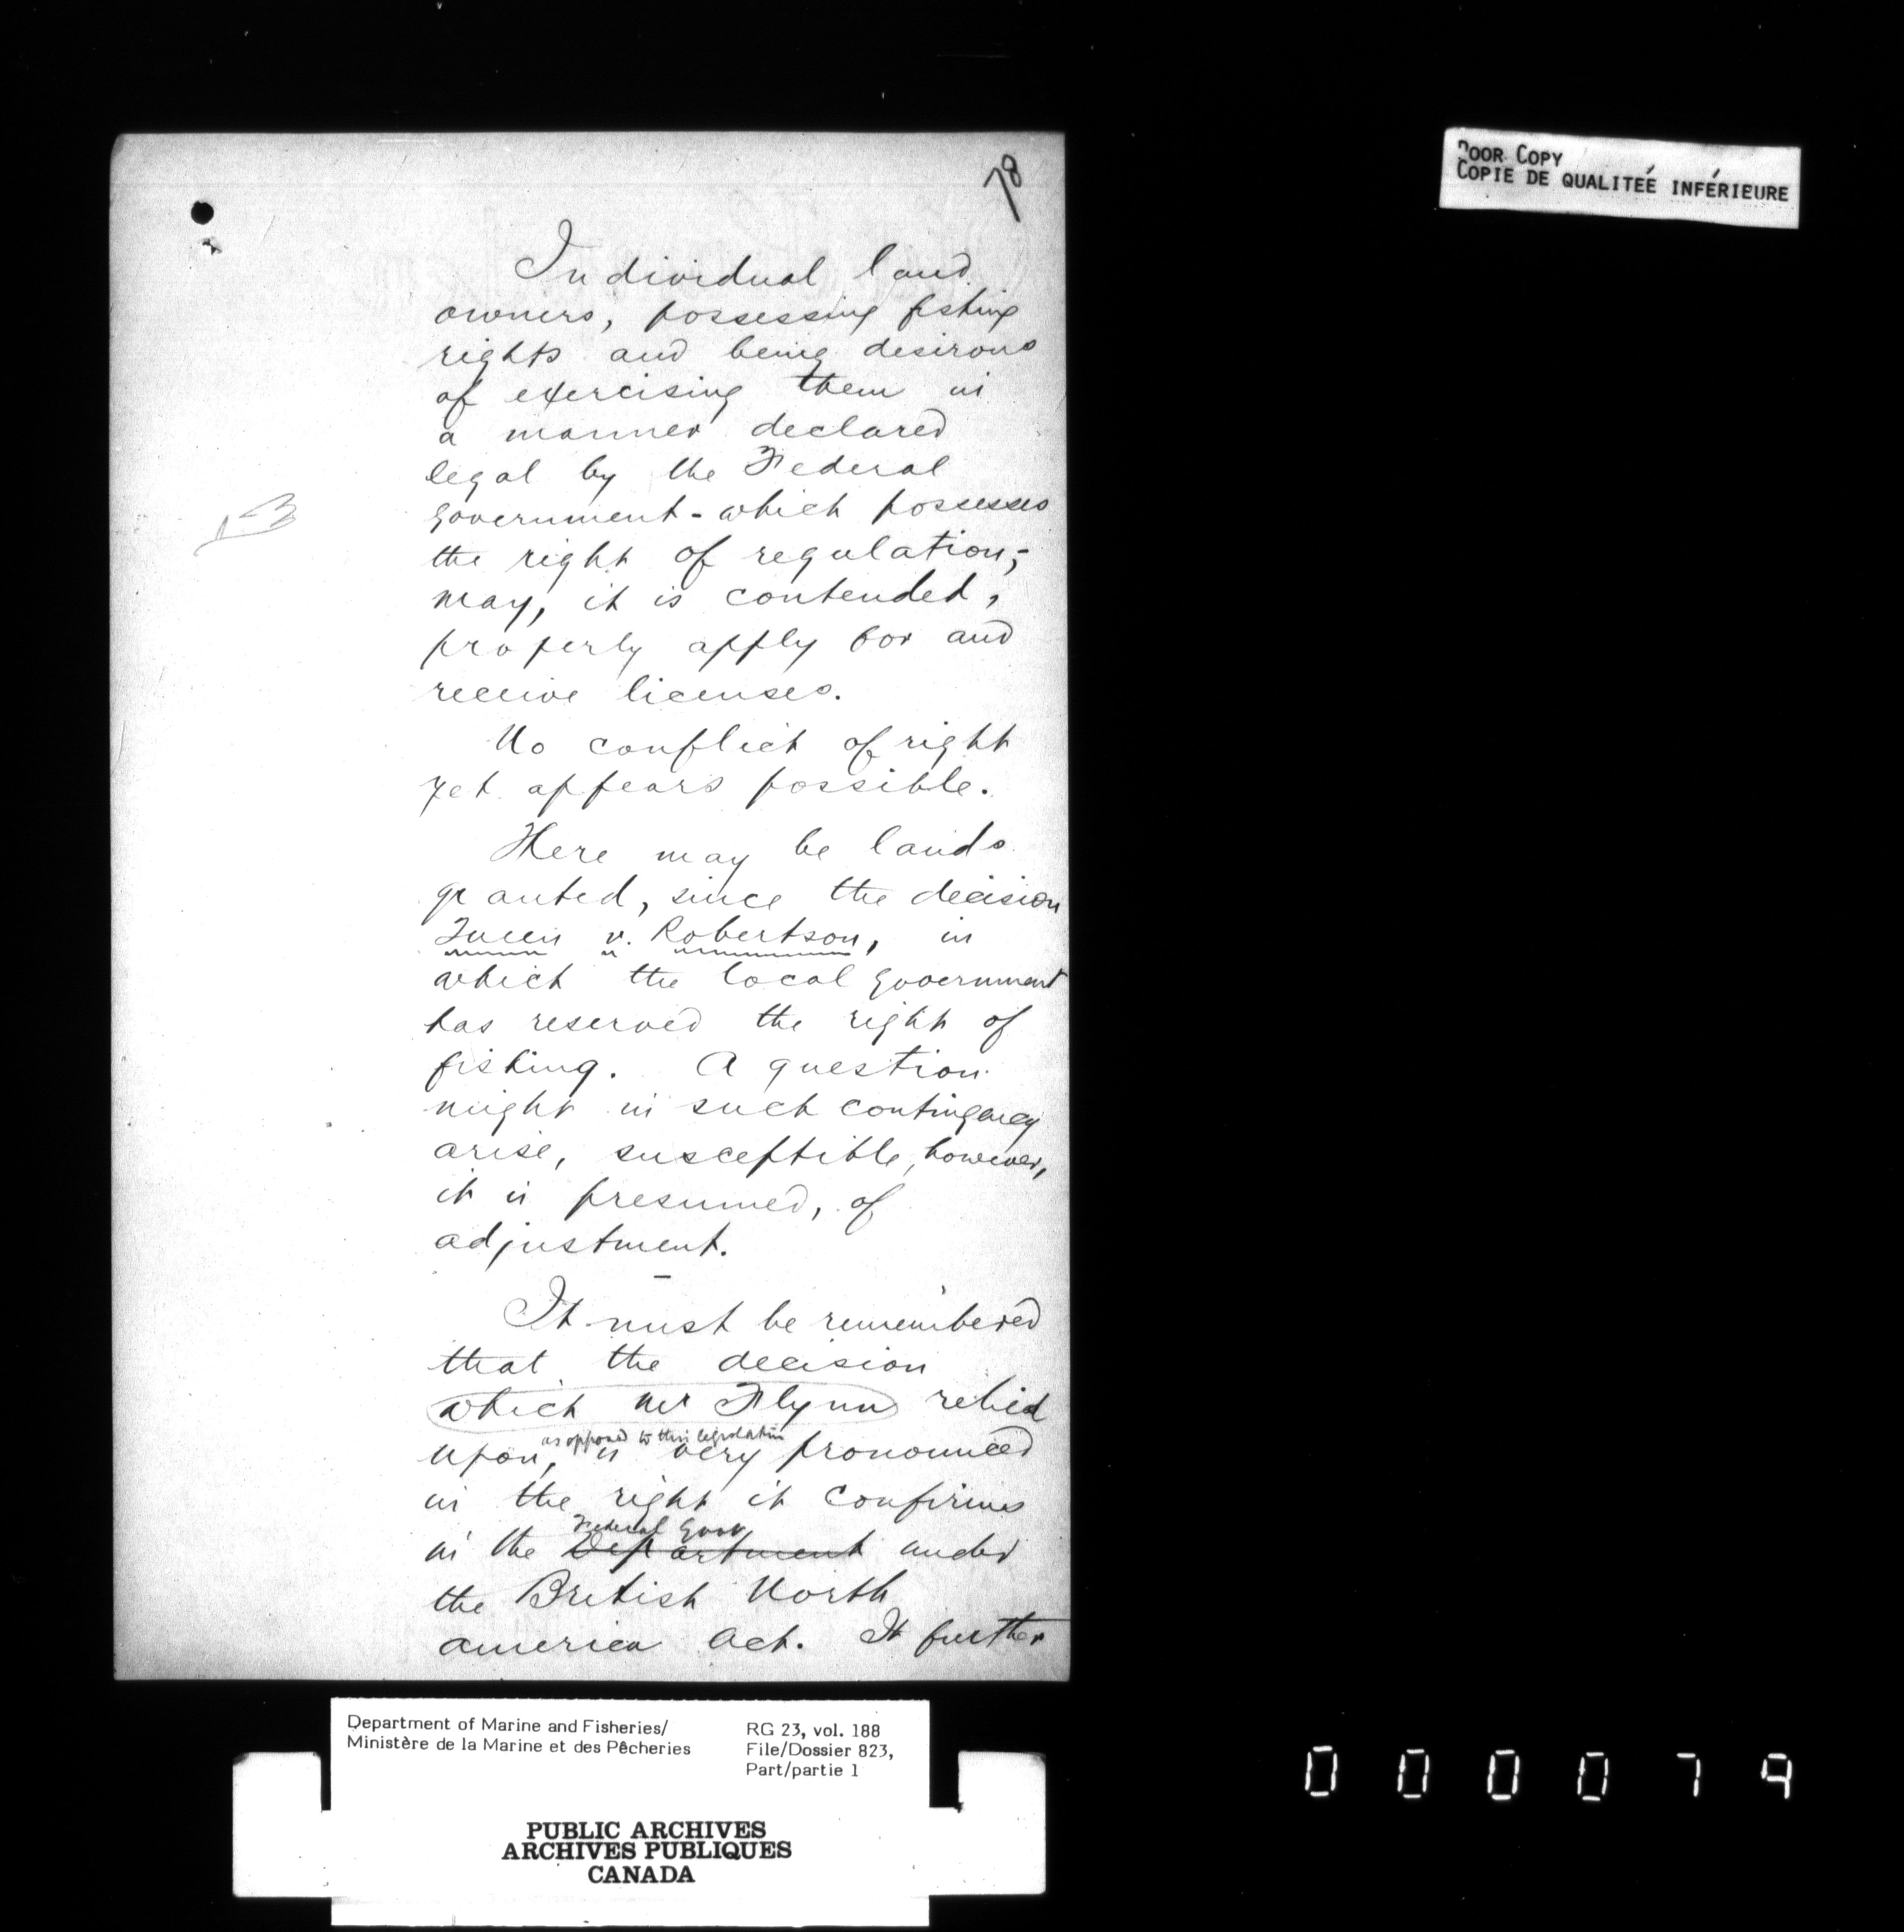 78
POOR COPY
COPIE DE QUALITEÉ INFÉRIEURE
Individual land
owners, possessing fishing
rights and being desirous
of exercising them in
a manner declared
legal by the Federal
Government - which possesses
the right of regulation,-
may, it is contended,
properly apply for and
receive licenses.
No conflict of right
yet appears possible.
There may be lands
granted, since the decision
Queen v. Robertson, in
which the local Government
has reserved the right of
fishing. A question
might in such contingency
arise, susceptible, however,
it is presumed, of
adjustment.
It must be remembered
that the decision
which Mr Flynn relied
as opposed to this legislation
upon, is very pronounced
in the right it confirms
Federal Govt
in the Department under
the British North
america Act. It further
Department of Marine and Fisheries/
Ministère de la Marine et des Pêcheries
RG 23, vol. 188
File/Dossier 823,
Part/partie 1
PUBLIC ARCHIVES
ARCHIVES PUBLIQUES
CANADA
000079